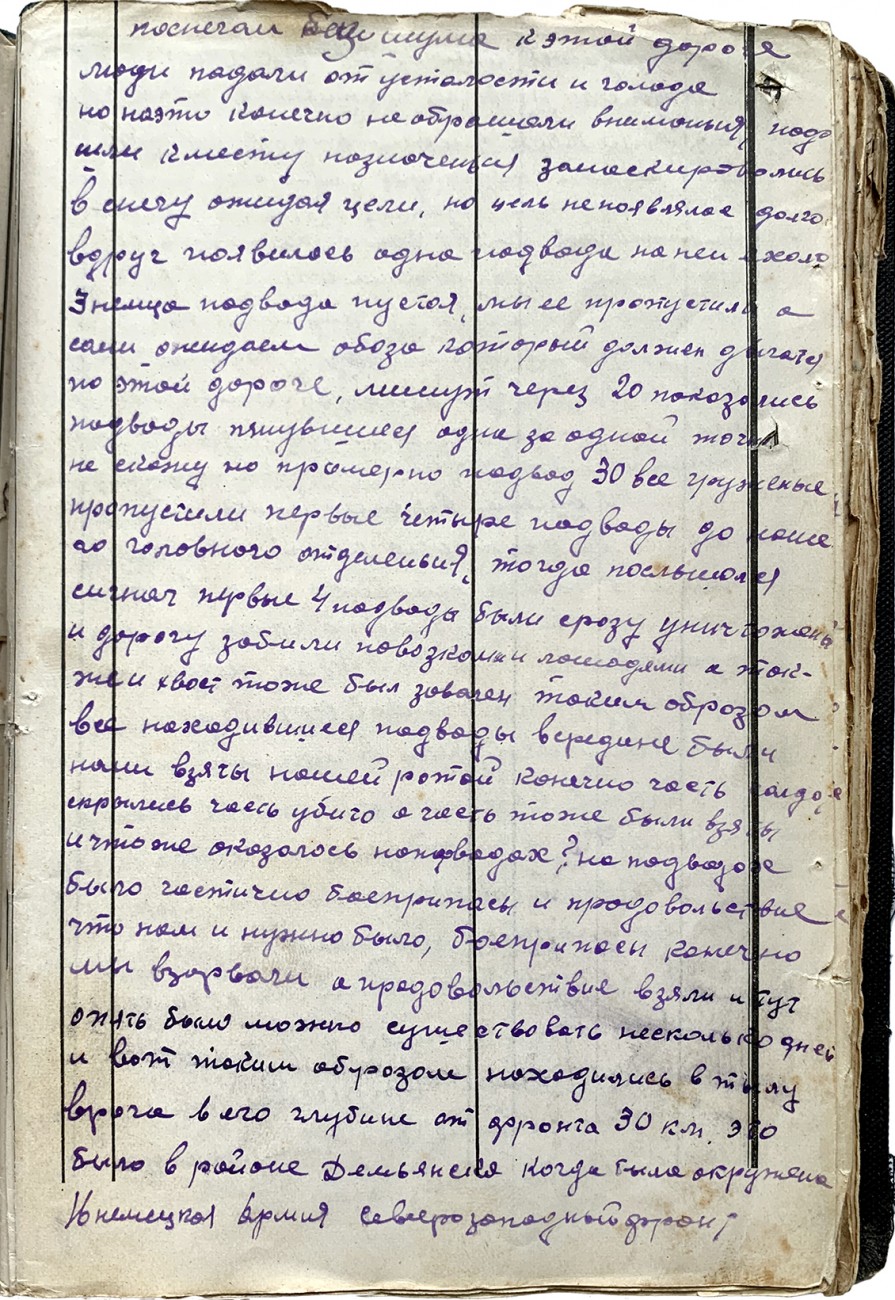 поспегам без шума к этой дороге
люди падали от усталости и голода
но наэто конечно необращали внимонья, подо
шли кместу назначенья замаскировались
в снегу ожидая цели, но цель непоявлялас долго
вдруг появилось одна подвода на ней ехало
3 немца подвода пустая, мы ее пропустили а
сами ожидаем обоза который должен двигатся
по этой дороге, минут через 20 показались
подводы тянувшиеся одна за одной точно
не скажу но примерно подвод 30 все груженые,
пропустили первые четыре подводы до наше
го головного отделенья, тогда послышался
сигнал первые 4 подводы были сразу уничтожены
и дорогу забили повозками и лошадями а так-
же и хвост тоже был завален таким образом
все находившиеся подводы всередине были
нами взяты нашей ротой конечно часть солдат
скрылись часть убито а часть тоже были взяты
и чтоже оказалось наподводах? на подводах
было частично боеприпасы и продовольствие
что нам и нужно было, боеприпасы конечно
мы взорвали а продовольствие взяли и тут
опять было можно существовать несколько дней
и вот таким образом находились в тылу
врага в его глубине от фронта 30 км. это
было в районе Демьянска когда была окружена
16 немецкая Армия северозападный фронт